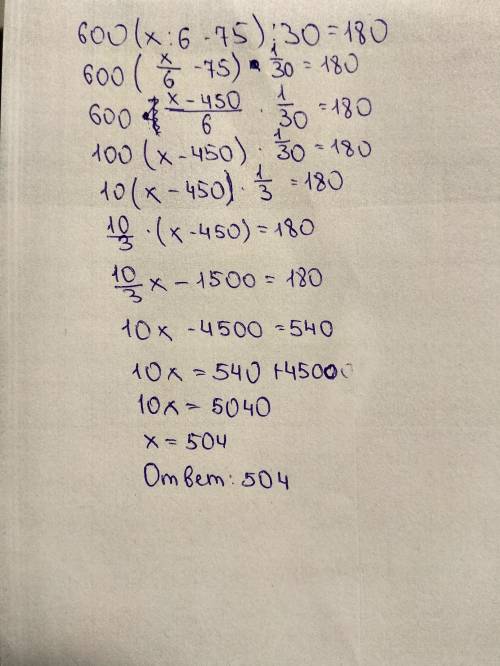 600(x:6-75):30=180
600(x/6-75)·1/30=180
600·x-450/6·1/30=180
100(x-450)·1/30=180
10(x-450)·1/3=180
10/3·(x-450)=180
10/3x-1500=180
10x-4500=540
10x=540+4500
10x=5040
x=504
Ответ:504